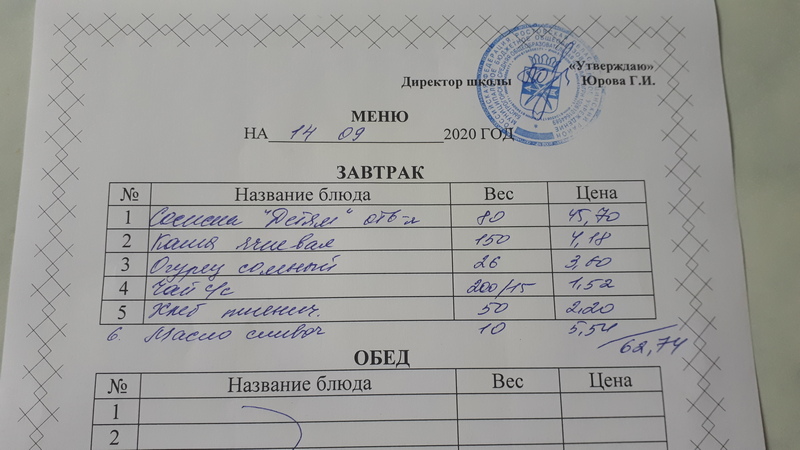 «Утверждаю»
Директор школы Юрова Г.И.
МЕНЮ
НА 14 09 2020 ГОД
ЗАВТРАК
№ Название блюда Вес Цена
1 Сосиски "Детям" отв-я 80 45,70
2 Каша ячневая 150 4,18
3 Огурец соленый 26 3,60
4 Чай с/с 200/15 1,52
5 Хлеб пшенич. 50 2.20
6. Масло сливоч 10 5,54
62,74
ОБЕД
№ Название блюда Вес Цена
1
2